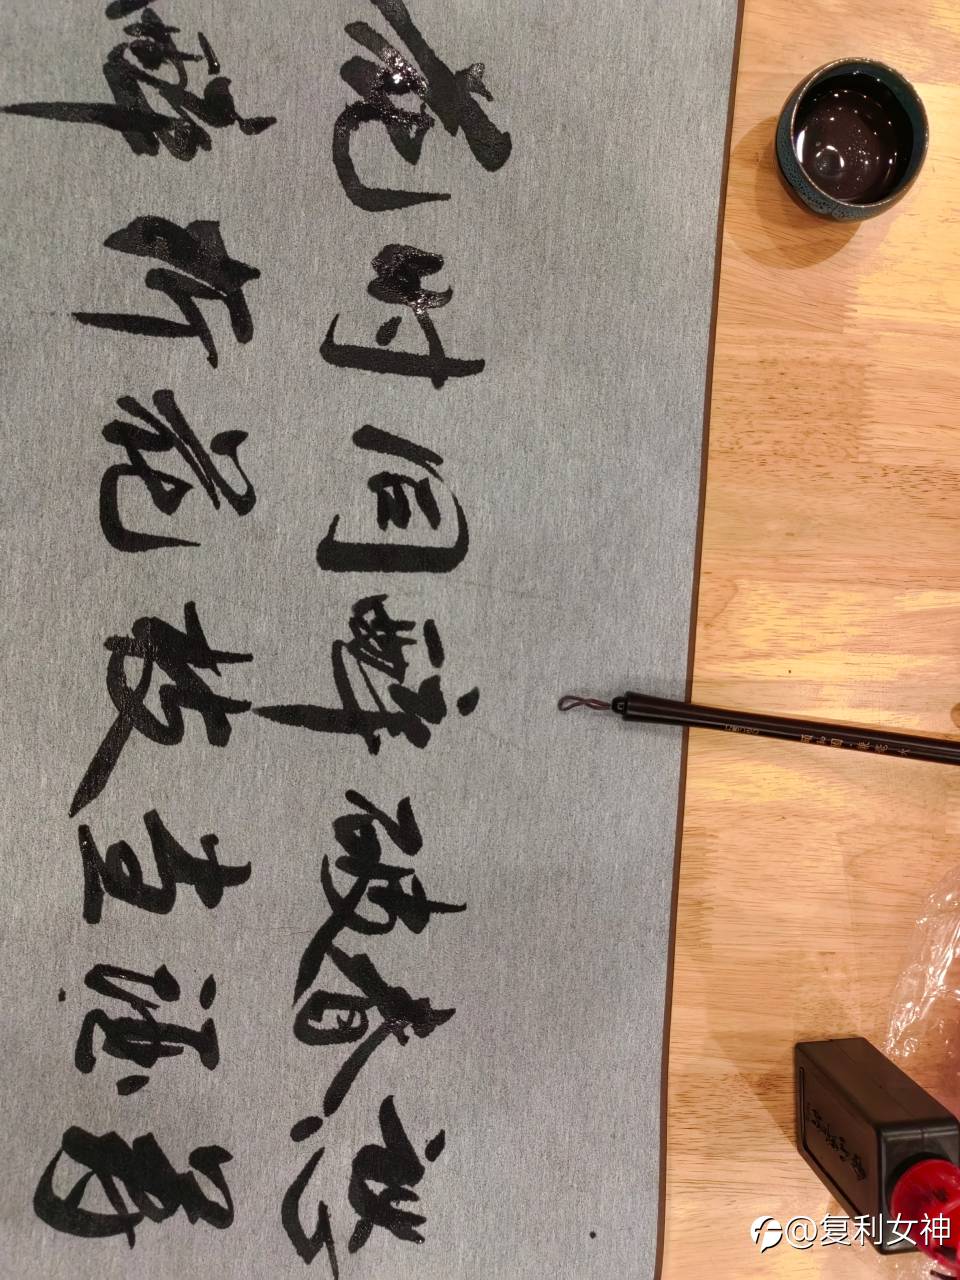 花时同醉破春愁
醉折花枝当酒筹
@复利女神